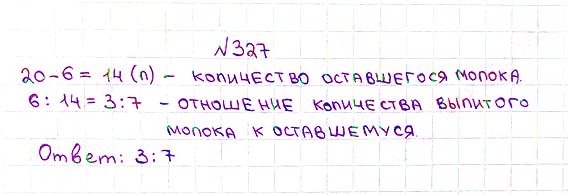 №327
20-6 = 14 (л) - количество оставшегося молока.
6 : 14 = 3:7 - отношение количества выпитого
молока к оставшемуся.
Ответ: 3:7